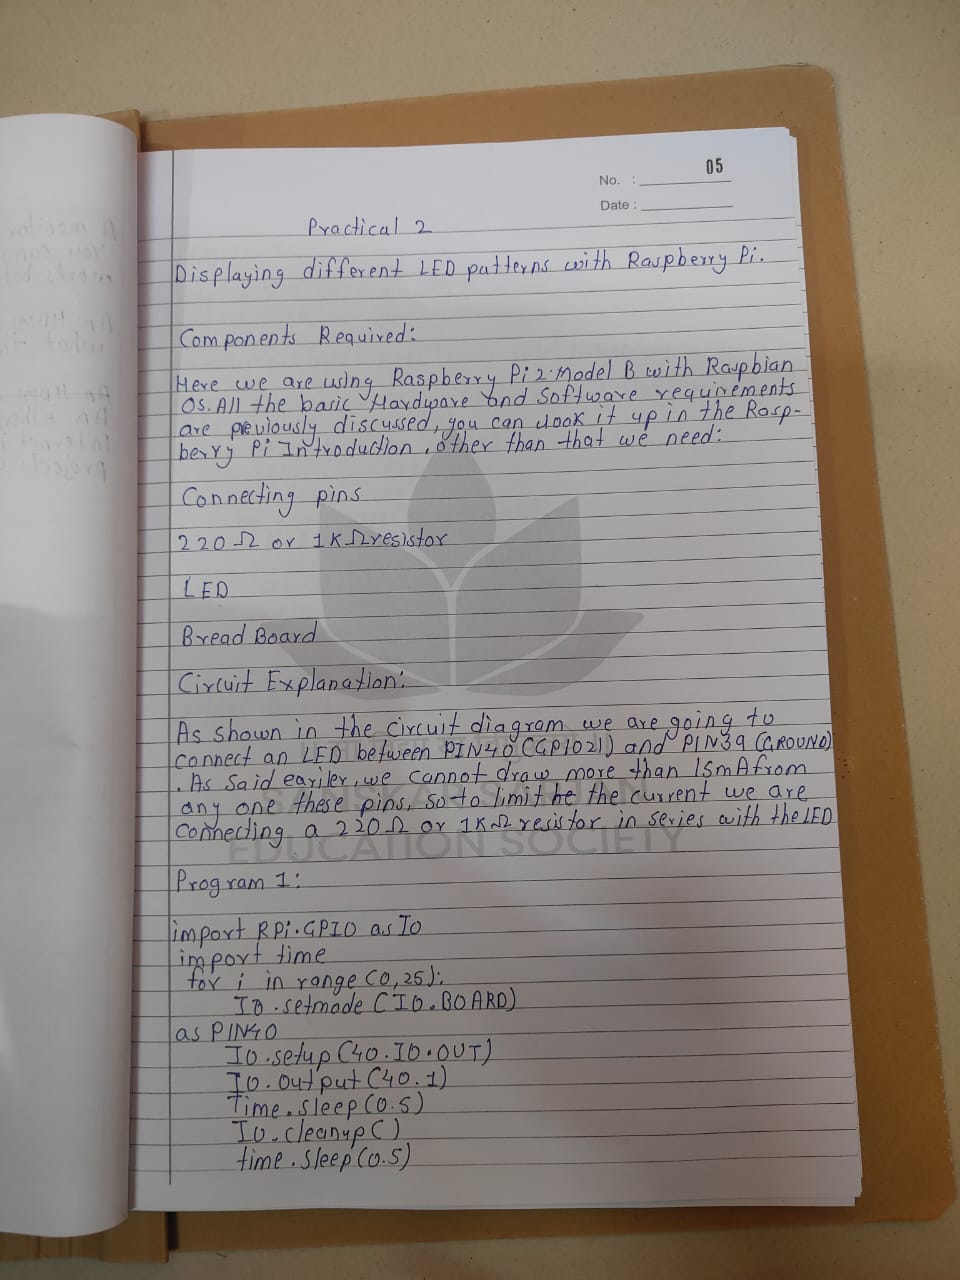 No. : 05
Date :
Practical 2
Displaying different LED patterns with Raspberry Pi.
Components Required:
Here we are using Raspberry Pi 2 Model B with Raspbian
OS. All the basic Hardware and Software requirements
are previously discussed, you can look it up in the Rasp-
berry Pi Introduction, other than that we need:
Connecting pins
220 Ω or 1KΩ resistor
LED
Bread Board
Circuit Explanation:
As shown in the circuit diagram we are going to
connect an LED between PIN40 (GPIO21) and PIN39 (GROUND)
. As said eariler, we cannot draw more than 15mA from
any one these pins, so to limit he the current we are
connecting a 220Ω or 1KΩ resistor in series with the LED
SANSKAR SARJAN
EDUCATION SOCIETY
Program 1:
import RPi.GPIO as IO
import time
for i in range (0,25):
IO.setmode (IO.BOARD)
as PIN40
IO.setup (40.IO.OUT)
IO.output (40.1)
Time.sleep (0.5)
IO.cleanup ( )
time.sleep (0.5)